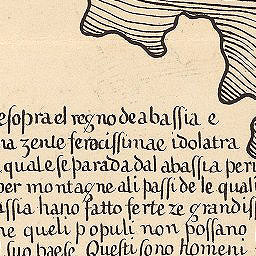 e sopra el regno de abassia e
na zente ferocissima e idolatra
quale se parada dal abassia per
per montagne a li passi de le quali
assia hano fatto forteze grandiss
he queli populi non possano
suo paese Questi sono homeni